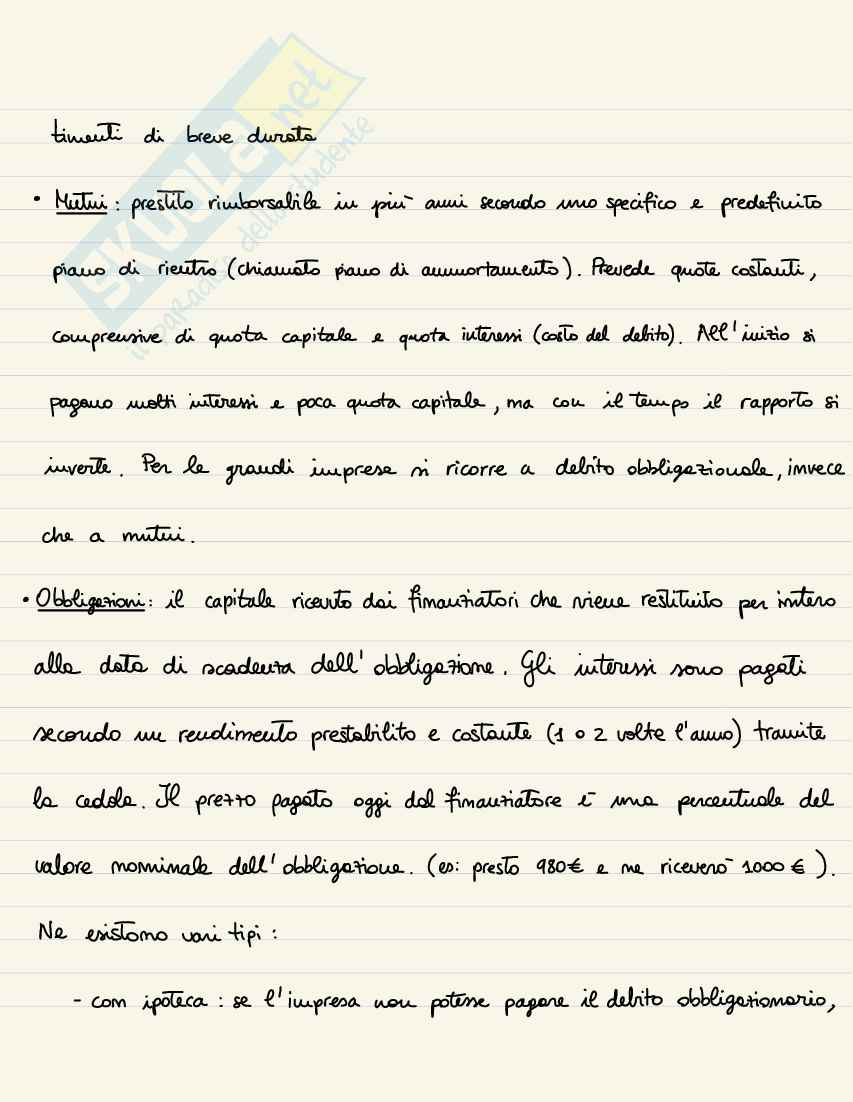 SKUOLA.net
il paradiso dello studente
timenti di breve durata
• Mutui: prestito rimborsabile in più anni secondo uno specifico e predefinito
piano di rientro (chiamato piano di ammortamento). Prevede quote costanti,
comprensive di quota capitale e quota interessi (costo del debito). All'inizio si
pagano molti interessi e poca quota capitale, ma con il tempo il rapporto si
inverte. Per le grandi imprese si ricorre a debito obbligazionale, invece
che a mutui.
• Obbligazioni: il capitale ricevuto dai finanziatori che viene restituito per intero
alla data di scadenza dell'obbligazione. Gli interessi sono pagati
secondo un rendimento prestabilito e costante (1 o 2 volte l'anno) tramite
la cedola. Il prezzo pagato oggi dal finanziatore è una percentuale del
valore nominale dell'obbligazione. (es: presto 980€ e ne riceverò 1000€).
Ne esistono vari tipi:
- con ipoteca: se l'impresa non potesse pagare il debito obbligazionario,